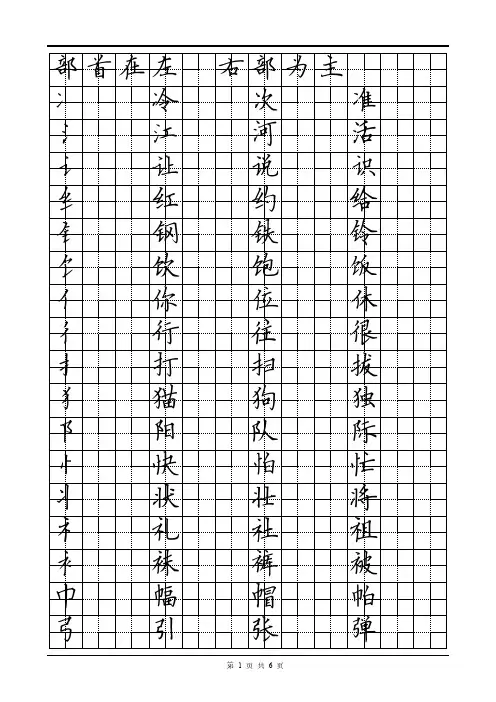 部首在左 右部为主
冫 冷 次 准
氵 江 河 活
讠 让 说 识
纟 红 约 给
钅 钢 铁 铃
饣 饮 饱 饭
亻 你 位 休
彳 行 往 很
扌 打 扫 拔
犭 猫 狗 独
阝 阳 队 陈
忄 快 怕 忙
丬 状 壮 将
礻 礼 社 祖
衤 袜 裤 被
巾 幅 帽 帕
弓 引 张 弹
第 1 页 共 6 页